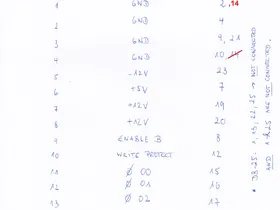 1 GND 2,14
2 GND 4
3 GND 9, 21
4 GND 10, 14
5 -12V 23
6 +5V 7
7 +12V 19
8 +12V 20
9 ENABLE B 8
10 WRITE PROTECT 12
11 Ø 00 15
12 Ø 01 16
13 Ø 02 17
• DB25: 1, 13, 22, 25 → NOT CONNECTED
AND 1-R25 ARE NOT CONNECTED.